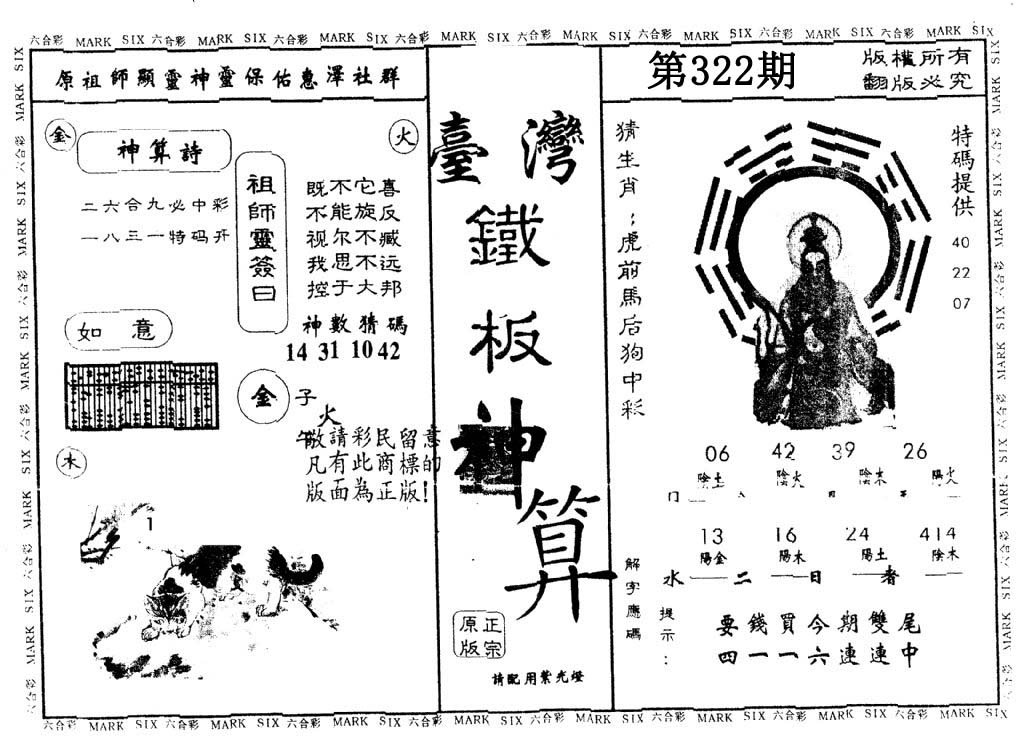 六合彩 MARK SIX 六合彩 MARK SIX 六合彩 MARK SIX 六合彩 MARK SIX 六合彩 MARK SIX 六合彩 MARK SIX 六合彩 MARK SIX 六合彩 MARK SIX
原祖師顯靈神靈保佑惠澤社群
金
神算詩
火
二六合九必中彩
一八三一特码开
祖師靈簽曰
既不它喜
不能旋反
视尔不臧
我思不远
控于大邦
神數猜碼
14 31 10 42
如意
金
子
火
午
敬請彩民留意
凡有此商標的
版面為正版!
木
1
臺灣
鐵
板
神
算
原正
版宗
請配用紫光燈
第322期
版權所有
翻版必究
猜生肖:虎前馬后狗中彩
特碼提供
40
22
07
06 42 39 26
陰土 陰火 陰木 陽火
13 16 24 414
陽金 陽木 陽土 陰木
水二日者
解字應碼
提示:
要錢買今期雙尾
四一一六連連中
六合彩 MARK SIX 六合彩 MARK SIX 六合彩 MARK SIX 六合彩 MARK SIX 六合彩 MARK SIX 六合彩 MARK SIX 六合彩 MARK SIX 六合彩 MARK SIX